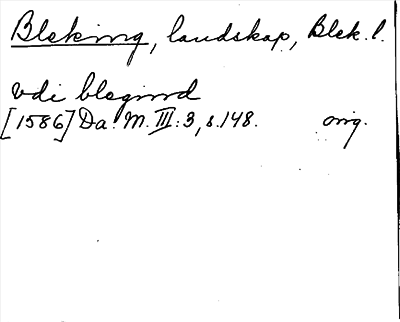 Bleking, landskap, Blek. l.
vdi blegind
[1586] Da. M. III:3, s. 148. orig.